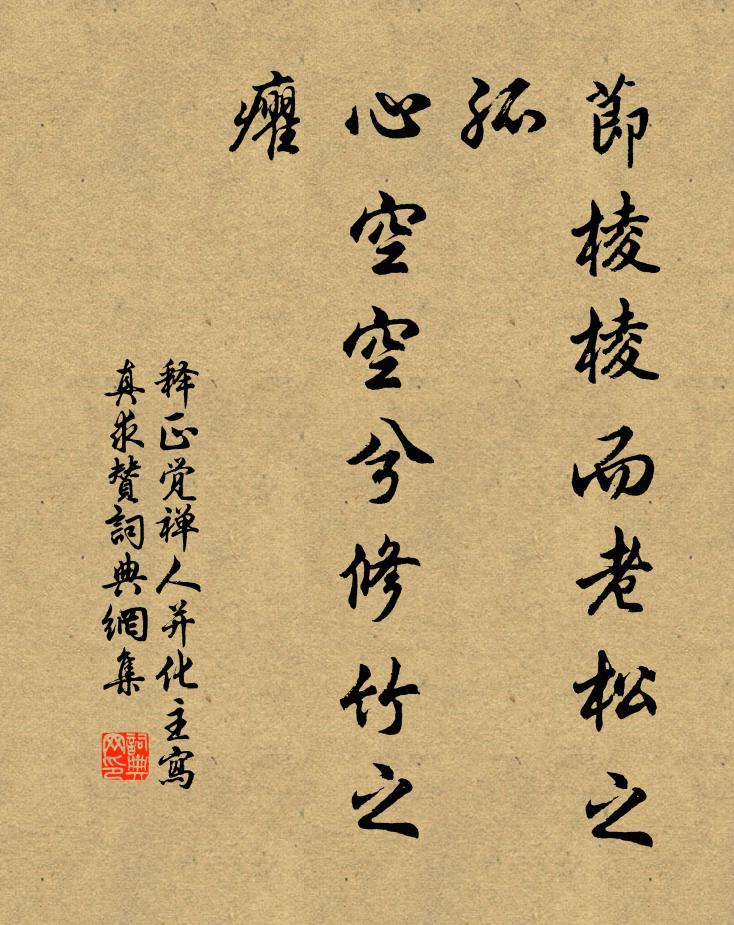 節棱棱而老松之
孤
心空空兮修竹之
癯
释正觉禅人并化主寫
真求賛詞典網集
詞典
网印